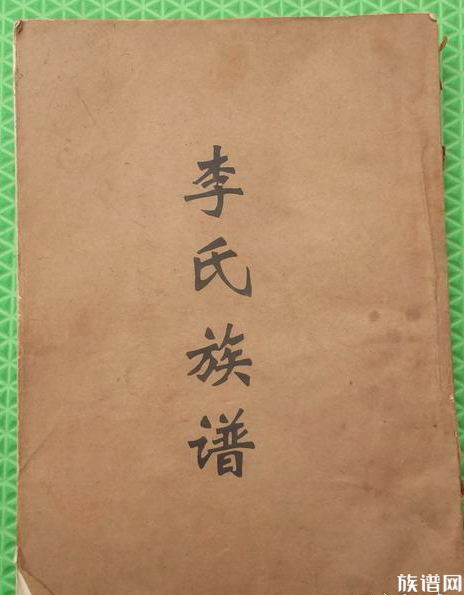 李氏族谱
族谱网